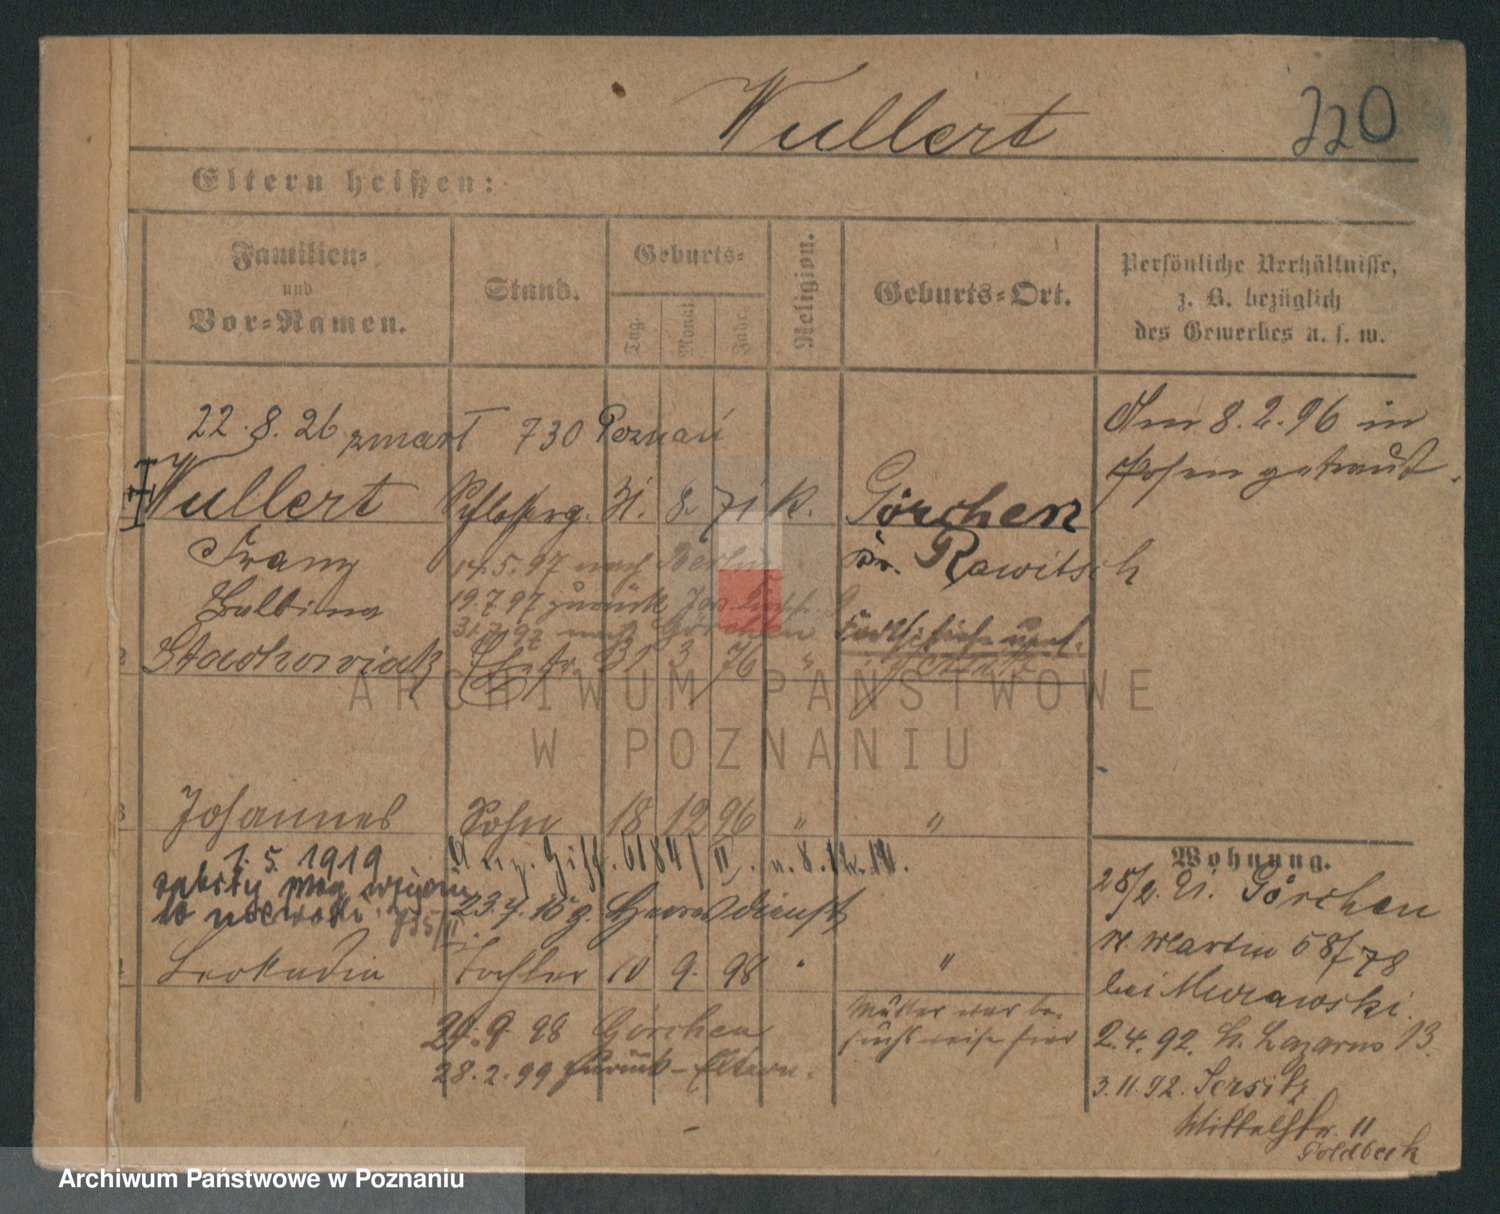 Wullert
220
Eltern heißen:
Familien-
und
Vor-Namen.
Stand.
Geburts-
Tag.
Monat.
Jahr.
Religion.
Geburts-Ort.
Persönliche Verhältnisse,
z. B. bezüglich
des Gewerbes u. s. w.
22. 8. 26 zmarł 730 Poznań
Am 8.2.96 in
Posen getraut.
Wullert 31. 8 71 k. Görchen
Franz 14.5.97 nach Berlin Kr. Rawitsch
Balbina 19.7.97 zurück
31.7.97 nach Görchen
2 Stachowiak 31 3 76 "
ARCHIWUM PAŃSTWOWE
W POZNANIU
3 Johannes Sohn 18 12 96 " "
1. 5. 1919
23.7. Heeresdienst
4 Leokadia Tochter 10 9. 98 " "
29.9.98 Görchen
28.2.99 zurück - Eltern.
Mutter war be-
suchsweise hier
Wohnung.
25/2. 91. Görchen
St. Martin 58/78
bei Murawski.
2.4.92. St. Lazarus 13.
3.11.92. Jersitz
Mittelstr. 11
Goldbeck
Archiwum Państwowe w Poznaniu